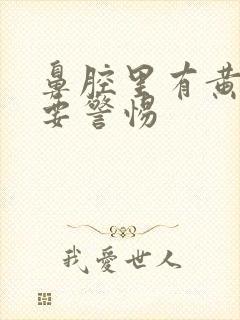 鼻腔里有黄
要警惕
我愛世人